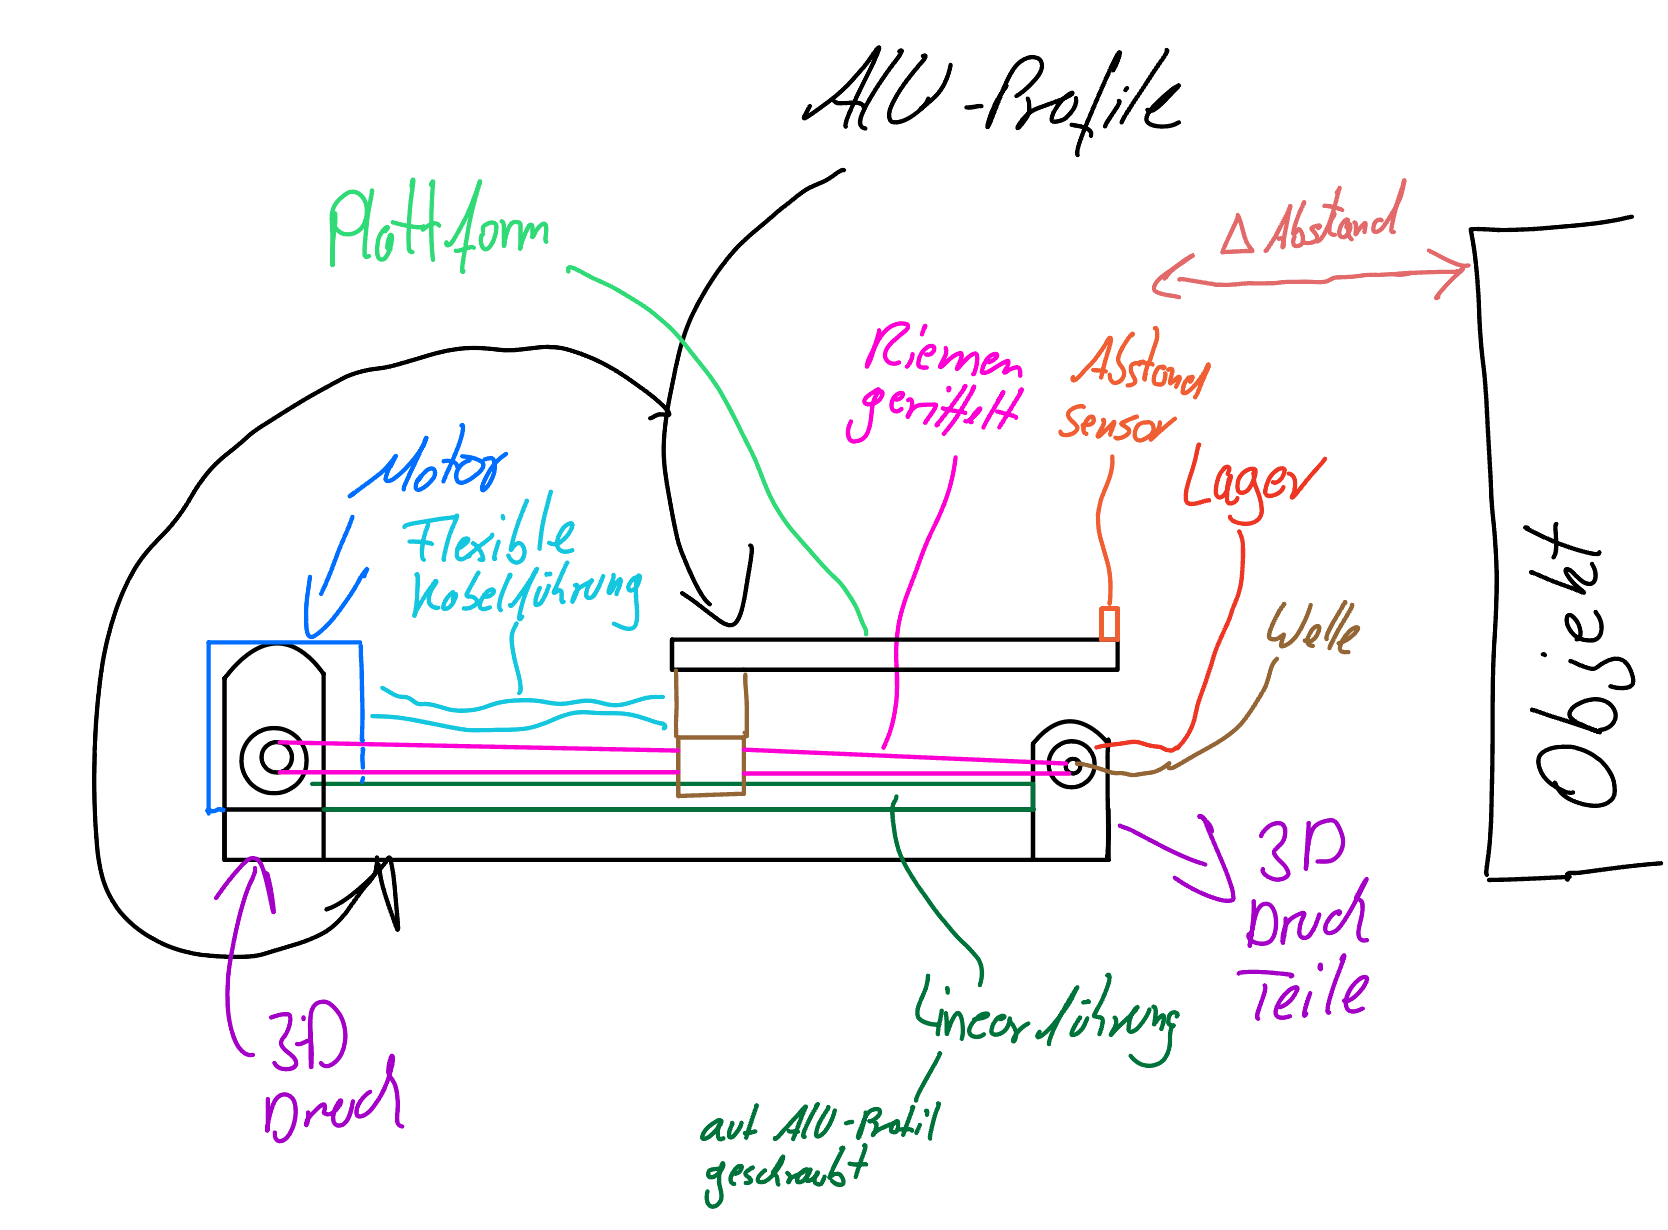 AlU-Profile
Plattform
Δ Abstand
Riemen
geriffelt
Abstand
sensor
Motor
Lager
Flexible
Kabelführung
Welle
Objekt
3D
Druck
Teile
Linearführung
3D
Druck
auf AlU-Profil
geschraubt